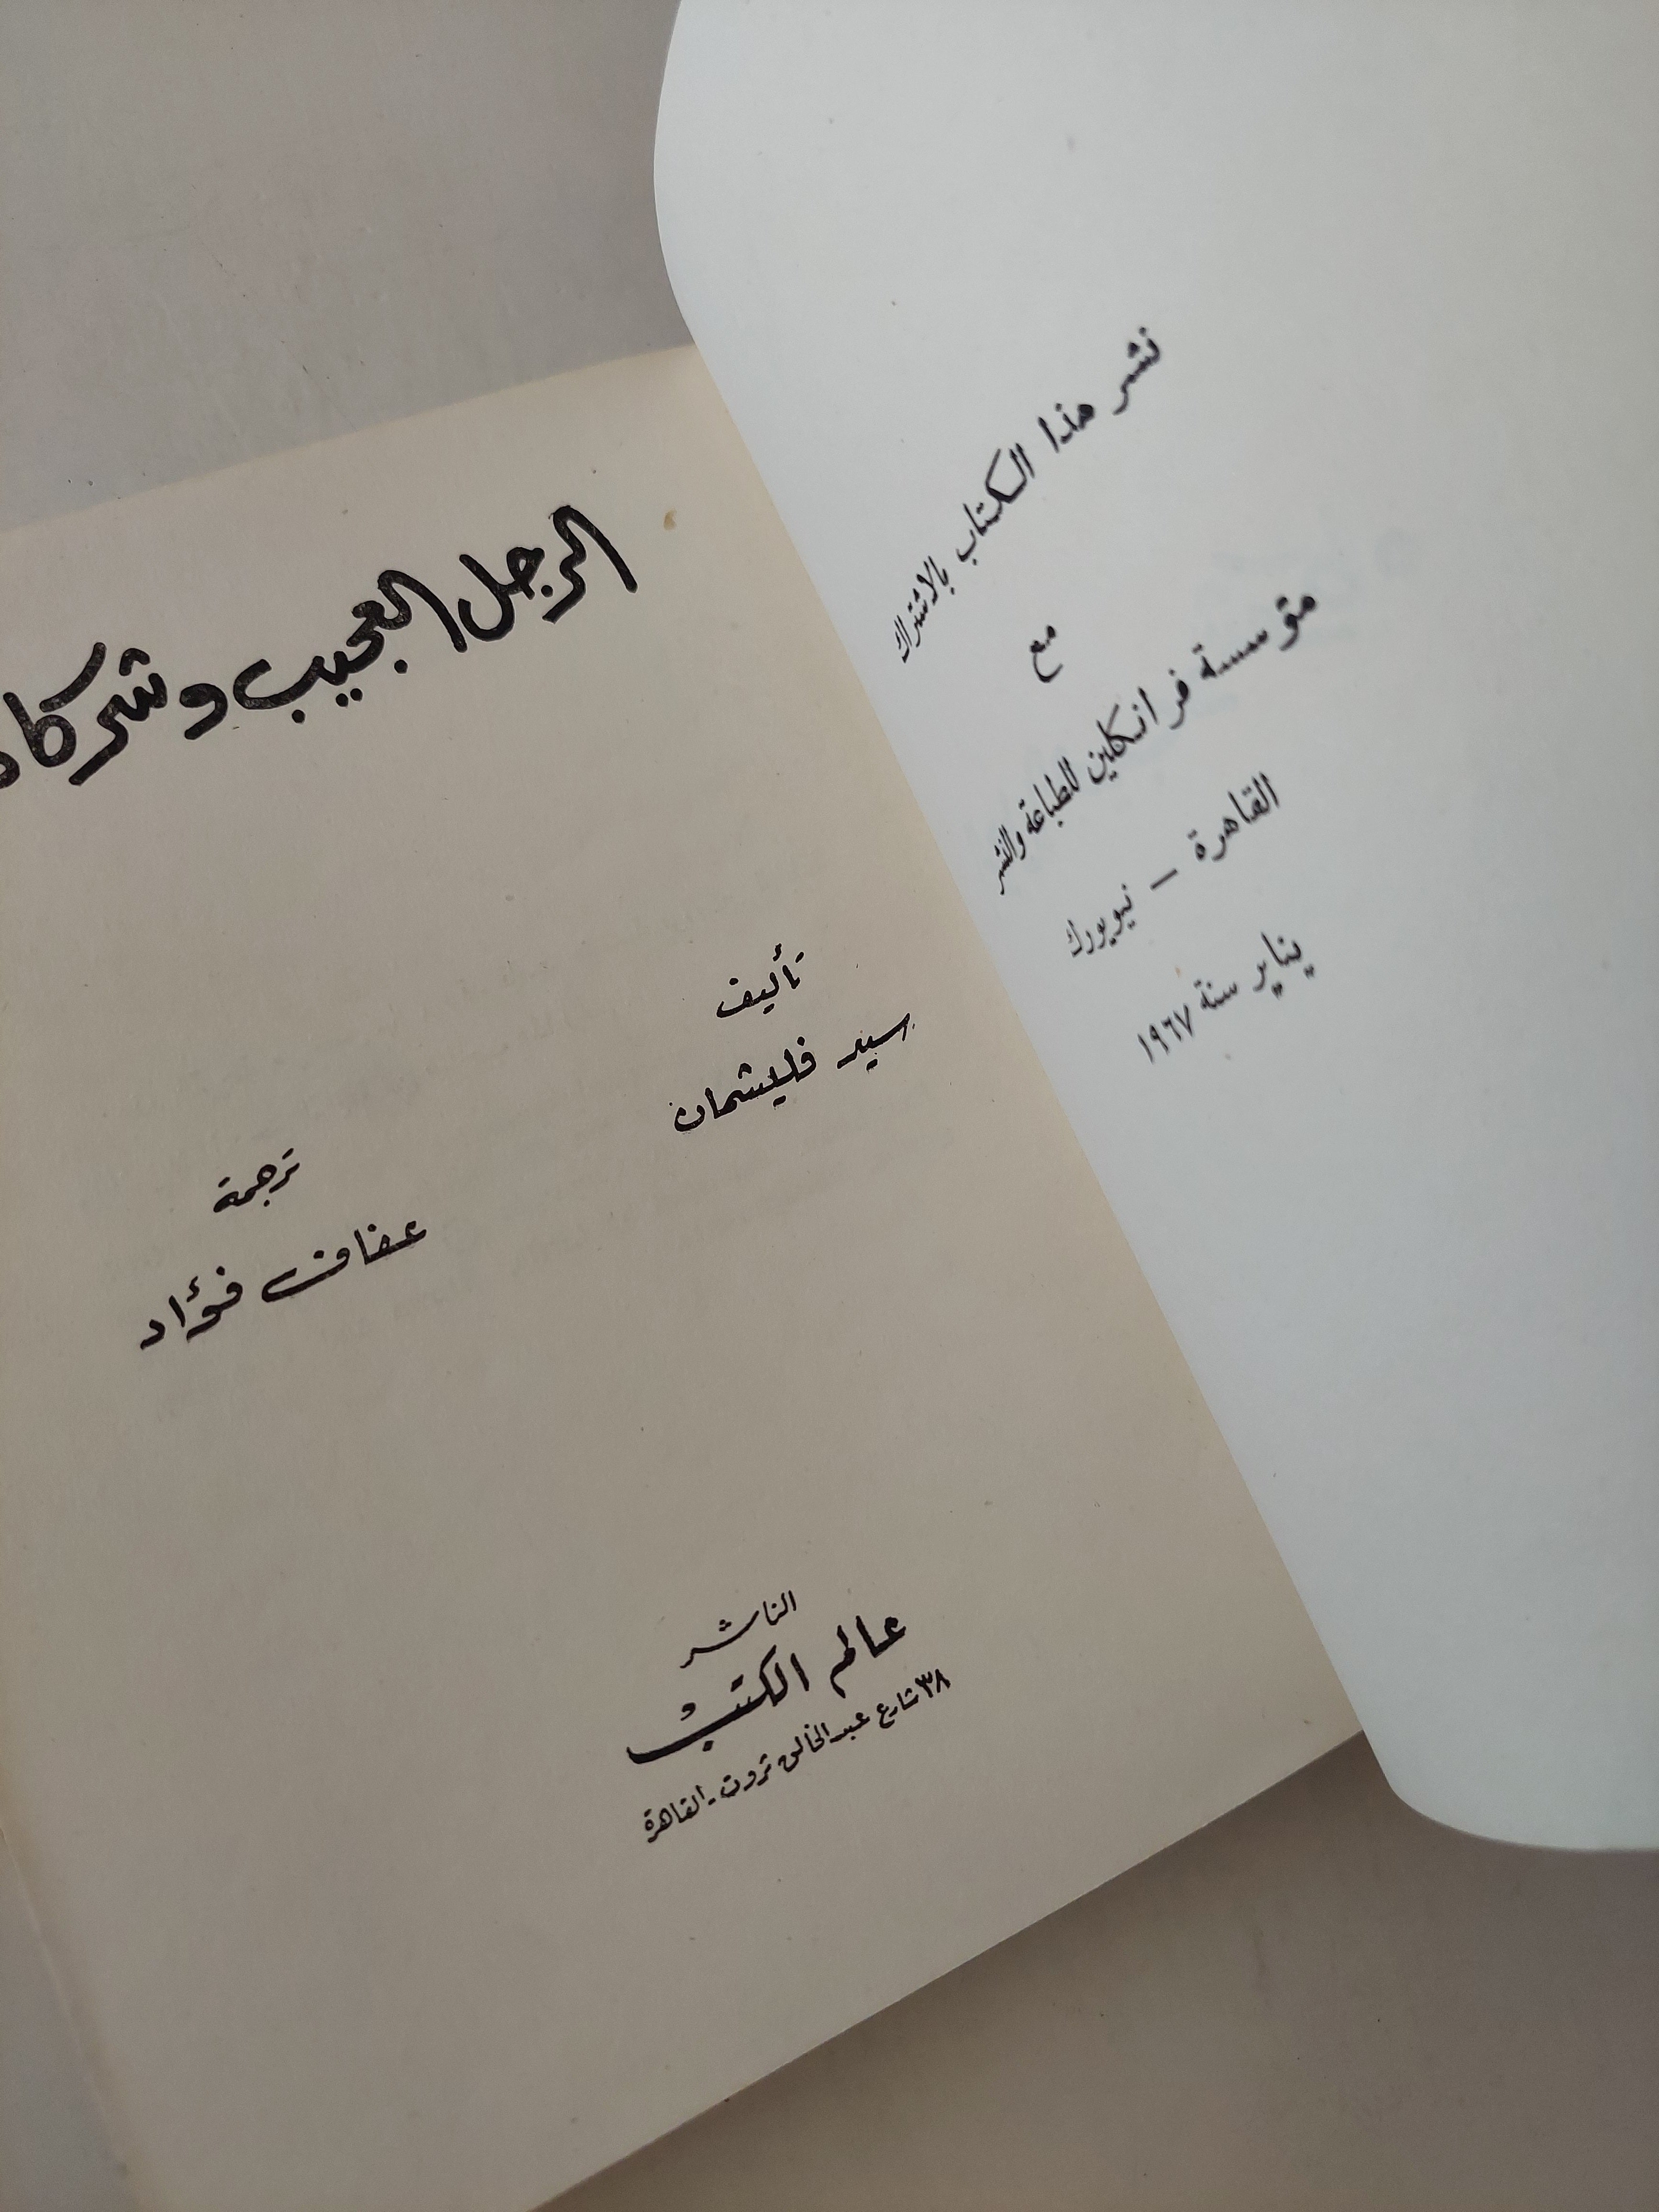 نشر هذا الكتاب بالاشتراك
مع
مؤسسة فرانكلين للطباعة والنشر
القاهرة – نيويورك
يناير سنة ١٩٦٧
الرجل العجيب وشركاه
تأليف
سيد فليشمان
ترجمة
عفاف فؤاد
الناشر
عالم الكتب
٣٨ شارع عبد الخالق ثروت - القاهرة